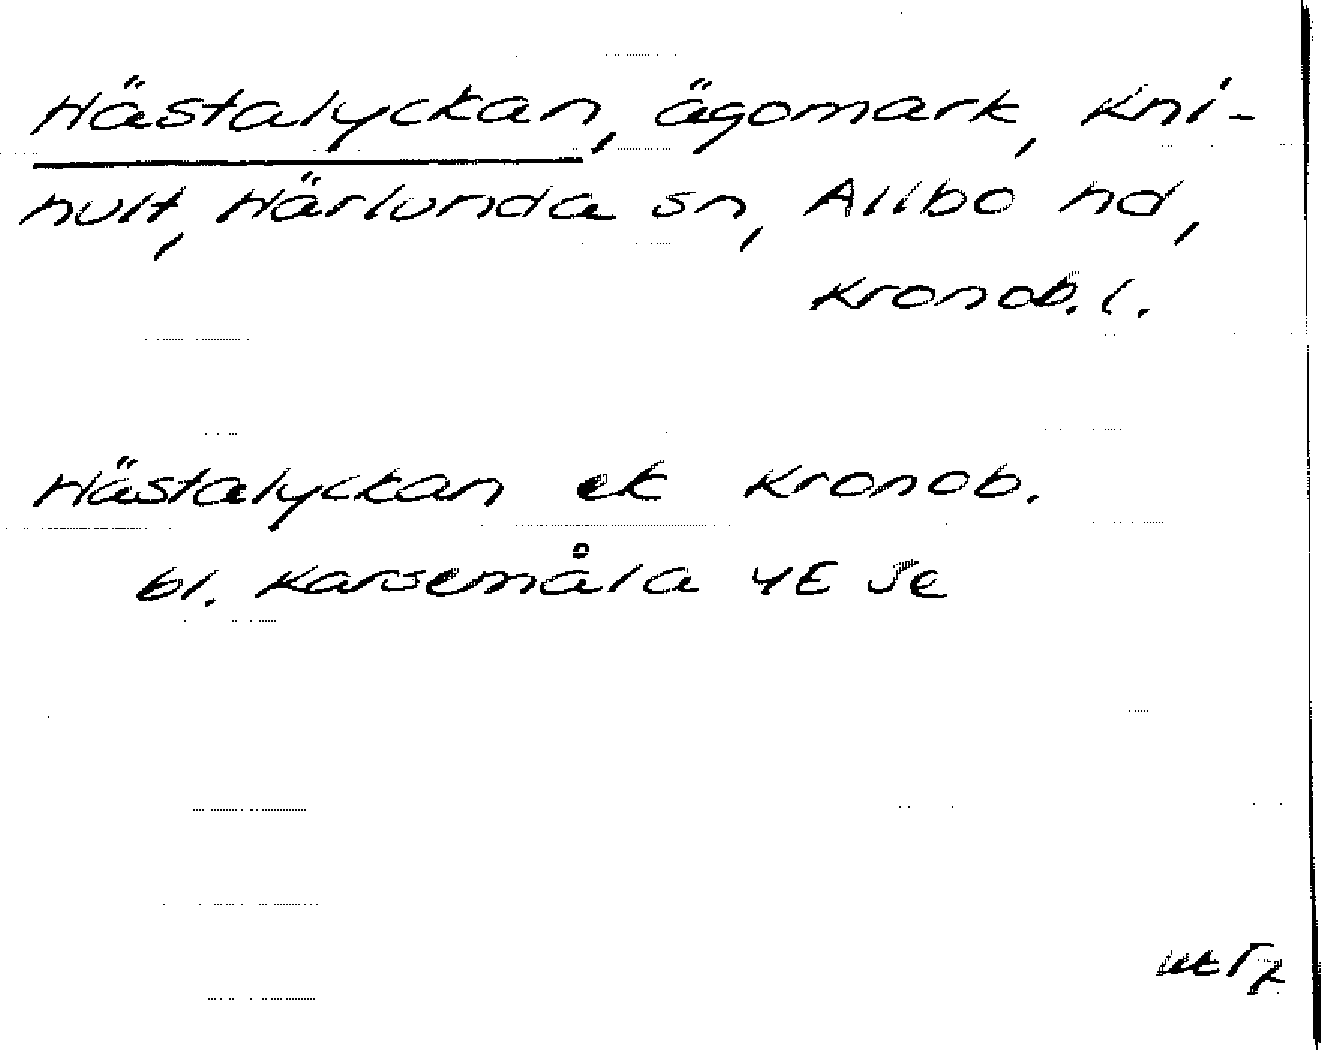 Hästalyckan, ägomark, Kni-
hult, Härlunda sn, Allbo hd,
Kronob. l.
Hästalyckan ek Kronob.
bl. Karsemåla 4E Se